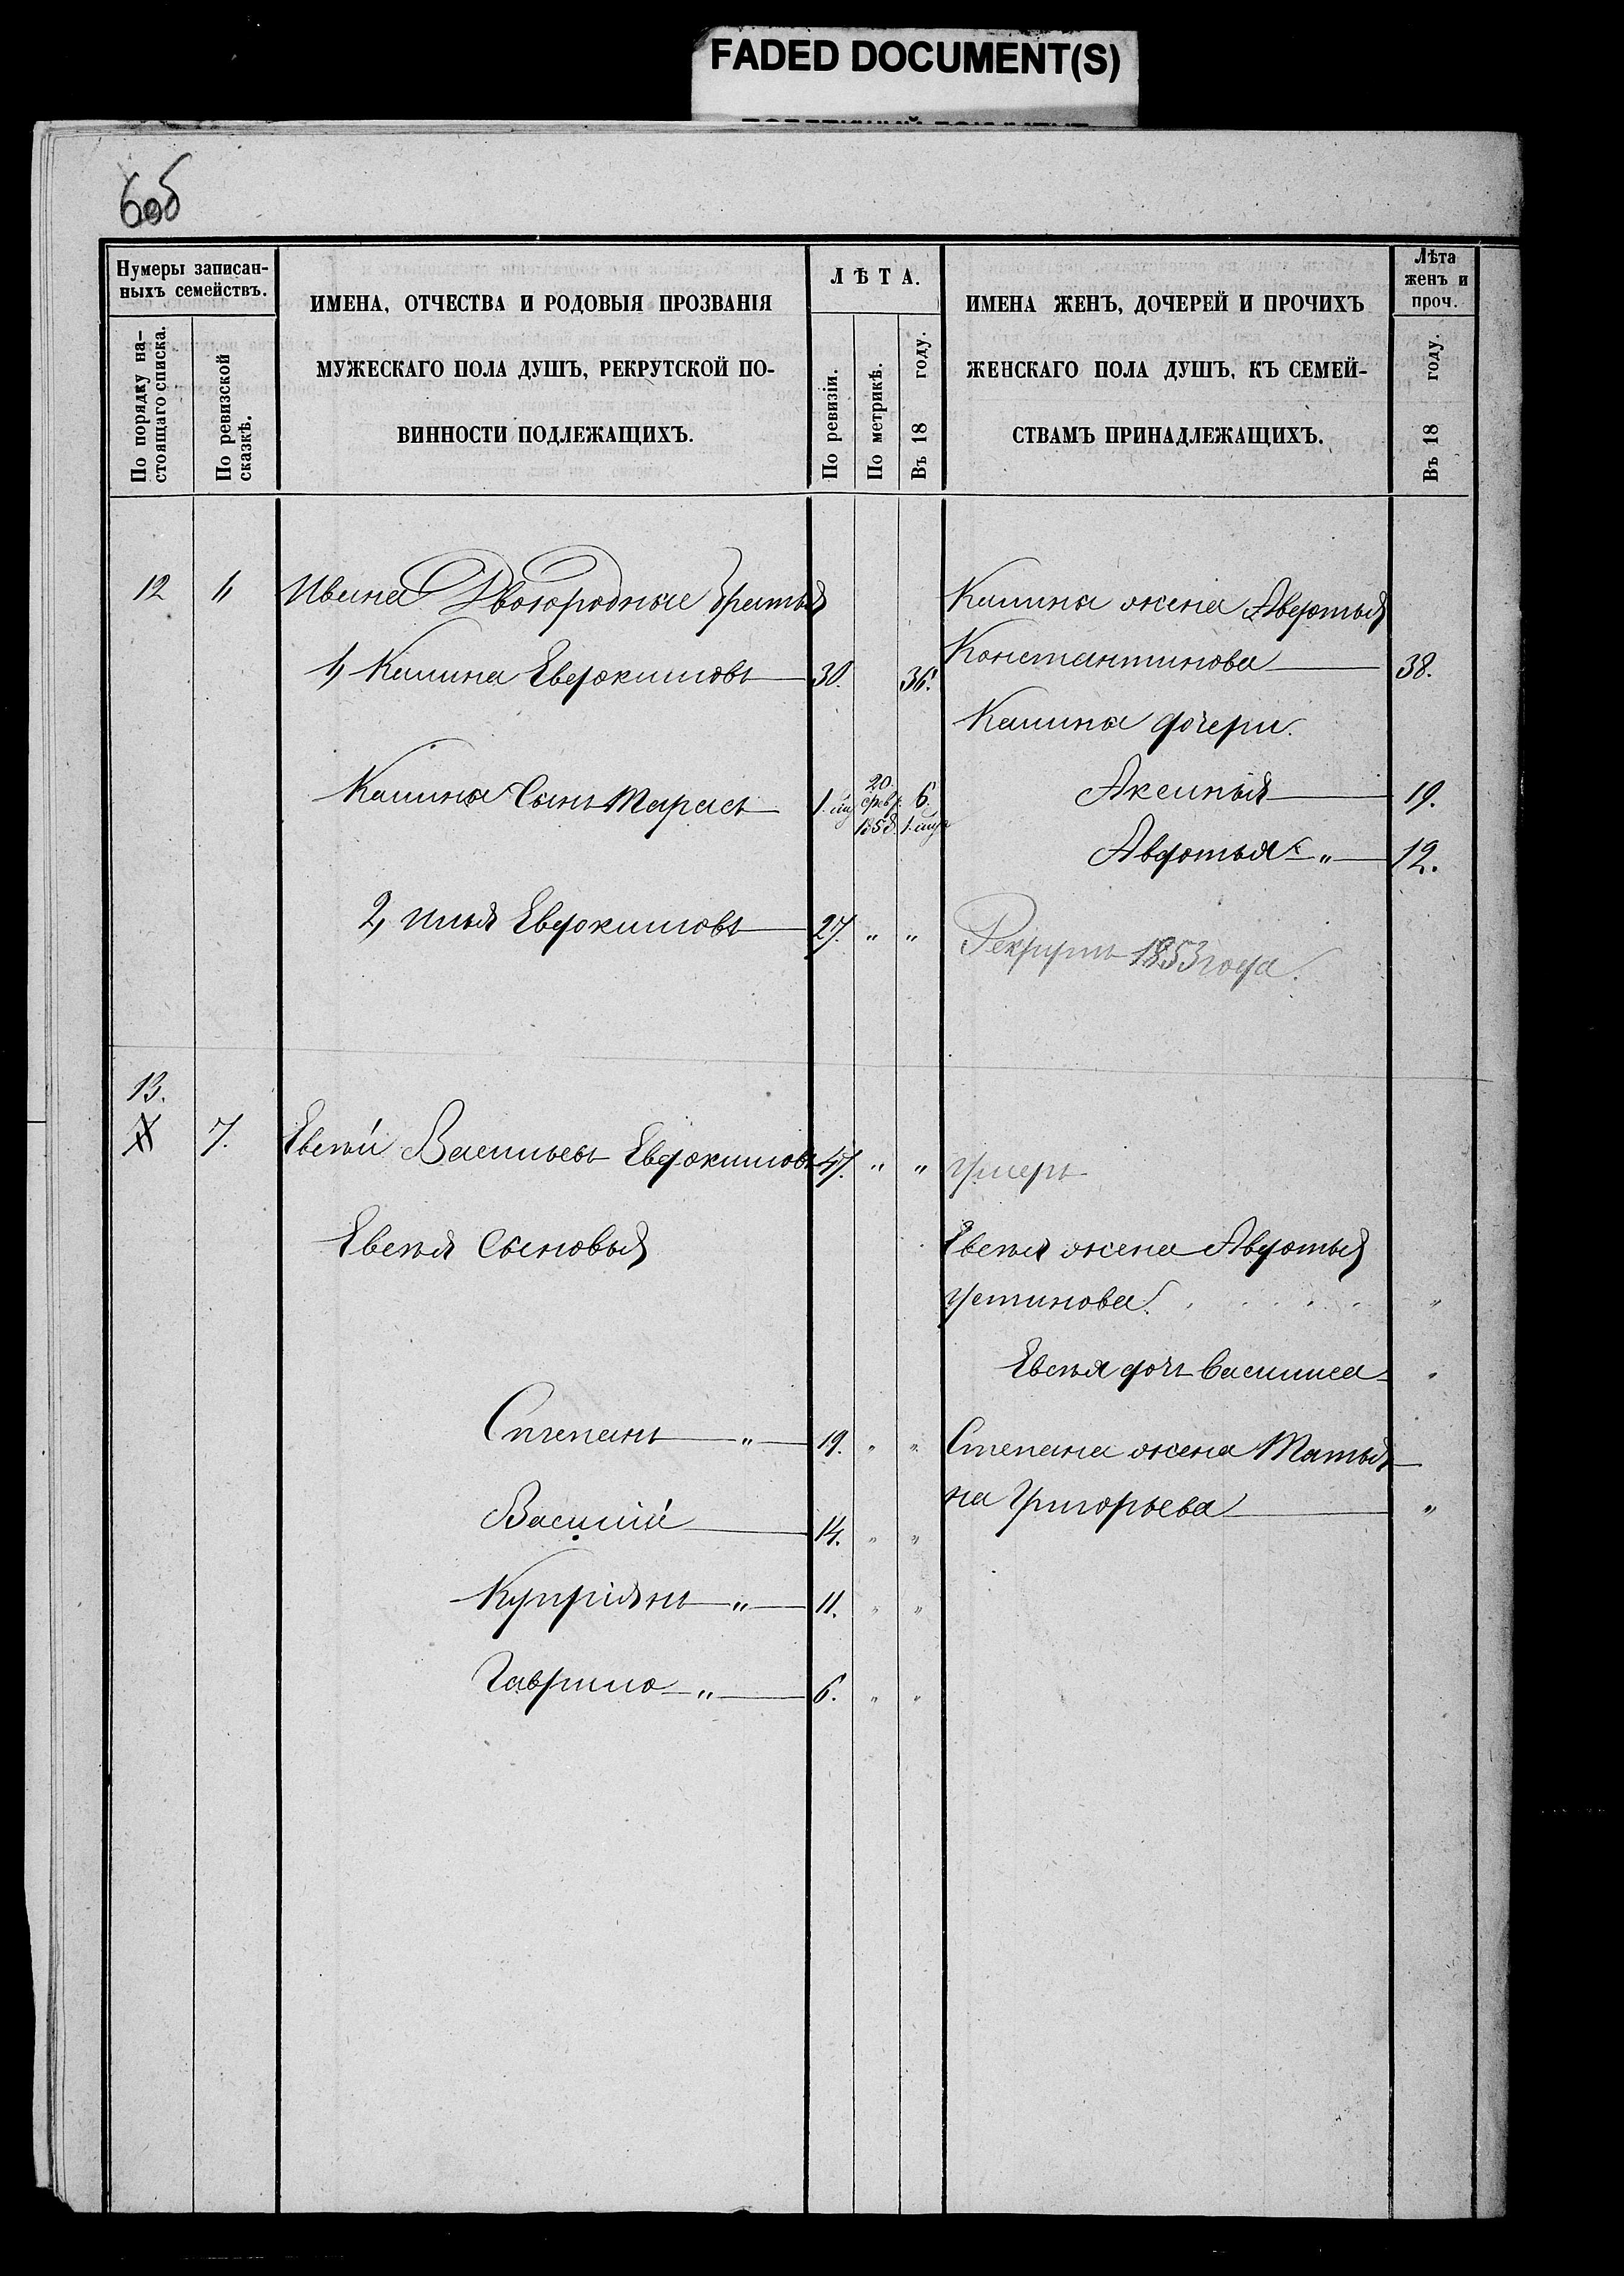 FADED DOCUMENT(S)
6 об
Нумеры записан-
ныхъ семействъ.
По порядку на-
стоящаго списка.
По ревизской
сказкѣ.
ИМЕНА, ОТЧЕСТВА И РОДОВЫЯ ПРОЗВАНІЯ
МУЖЕСКАГО ПОЛА ДУШЪ, РЕКРУТСКОЙ ПО-
ВИННОСТИ ПОДЛЕЖАЩИХЪ.
ЛѢТА.
По ревизіи.
По метрикѣ.
Въ 18 году.
ИМЕНА ЖЕНЪ, ДОЧЕРЕЙ И ПРОЧИХЪ
ЖЕНСКАГО ПОЛА ДУШЪ, КЪ СЕМЕЙ-
СТВАМЪ ПРИНАДЛЕЖАЩИХЪ.
Лѣта
женъ и
проч.
Въ 18 году.
12 " Ивана Двоюродные братья
Калины жена Авдотья
1, Калина Евдокимовъ 30. 36.
Константинова 38.
Калины дочери.
Калины Сынъ Тарасъ 1. 20 февр. 1858. 6. 1.
Аксинья 19.
Авдотья " 12.
2, Илья Евдокимовъ 27. " "
Рекрутъ 1853 года.
13.
7. Евсѣй Васильевъ Евдокимовъ 47. " " умеръ
Евсѣя Сыновья
Евсѣя жена Авдотья
Устинова. "
Евсѣя дочь Василиса "
Степанъ " 19. " "
Степана жена Татья-
на Григорьева "
Василій 14. " "
Купріянъ " 11. " "
Гаврило " 6. " "